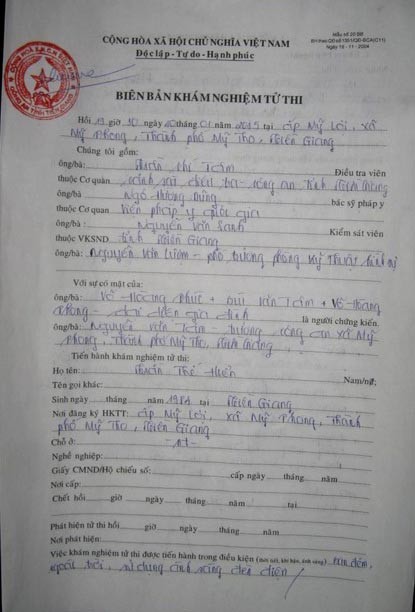 CỘNG HÒA XÃ HỘI CHỦ NGHĨA VIỆT NAM
Độc lập - Tự do - Hạnh phúc
Mẫu số 20 BB
Ngày 18 - 11 - 2004
BIÊN BẢN KHÁM NGHIỆM TỬ THI
Hồi 19 giờ 10 ngày 20 tháng 01 năm 2015 tại ấp Mỹ Lợi, xã
Mỹ Phong, Thành phố Mỹ Tho, Tiền Giang
Chúng tôi gồm:
ông/bà: Điều tra viên
thuộc Cơ quan cảnh sát điều tra - công an tỉnh Tiền Giang
ông/bà bác sỹ pháp y
thuộc Cơ quan Viện pháp y quốc gia
ông/bà: Nguyễn Văn Kiểm sát viên
thuộc VKSND tỉnh Tiền Giang
ông/bà: Nguyễn Văn - phó trưởng phòng Kỹ Thuật hình sự
Với sự có mặt của:
ông/bà: Võ Hoàng Phúc + Bùi Văn Tám + Võ Hoàng
- đại diện gia đình là người chứng kiến.
ông/bà: Nguyễn Văn - trưởng công an xã Mỹ
Phong, Thành phố Mỹ Tho, Tiền Giang
Tiến hành khám nghiệm tử thi:
Họ tên: Thế Hiền Nam/nữ:
Tên gọi khác:
Sinh ngày tháng năm 1984 tại Tiền Giang
Nơi đăng ký HKTT: ấp Mỹ Lợi, xã Mỹ Phong, Thành
phố Mỹ Tho, Tiền Giang
Chỗ ở: -nt-
Nghề nghiệp:
Giấy CMND/Hộ chiếu số: cấp ngày tháng năm
Nơi cấp:
Chết hồi giờ ngày tháng năm tại
Phát hiện tử thi hồi giờ ngày tháng năm
Nơi phát hiện:
Việc khám nghiệm tử thi được tiến hành trong điều kiện (thời tiết, khí hậu, ánh sáng) ban đêm,
ngoài trời, sử dụng ánh sáng đèn điện